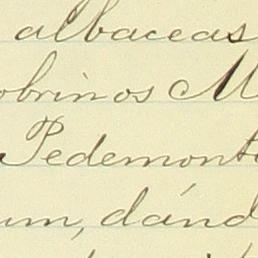 albaceas
obrinos M
Pedemont
um, dánd